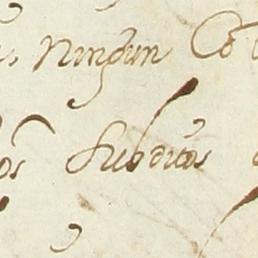 ningun Co
os subditos